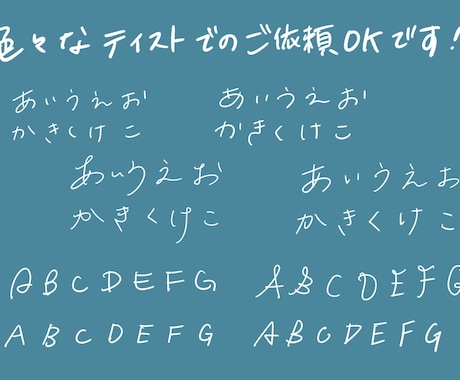 色々なテイストでのご依頼OKです!
あいうえお
かきくけこ
あいうえお
かきくけこ
あいうえお
かきくけこ
あいうえお
かきくけこ
ABCDEFG
ABCDEFG
ABCDEFG
ABCDEFG